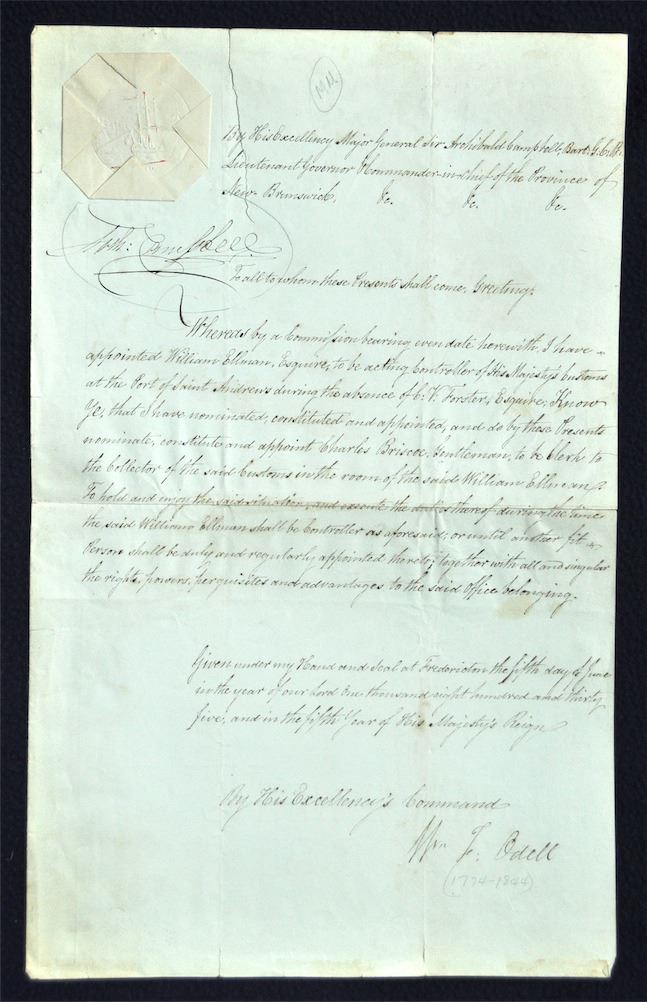 By His Excellency Major General Sir Archibald Campbell, Bart. G.C.B.
Lieutenant Governor & Commander-in-Chief of the Province of
New Brunswick, &c. &c. &c.
Arch: Campbell
To all to whom these Presents shall come, Greeting:
Whereas by a Commission bearing even date herewith, I have
appointed William Ellman, Esquire, to be acting Controller of His Majesty's Customs
at the Port of Saint Andrews during the absence of C. V. Forster, Esquire; Know
Ye, that I have nominated, constituted and appointed, and do by these Presents
nominate, constitute and appoint Charles Briscoe, Gentleman, to be Clerk to
the Collector of the said Customs in the room of the said William Ellman;
To hold and enjoy the said situation, and execute the duties thereof during the time
the said William Ellman shall be Controller as aforesaid, or until another fit
Person shall be duly and regularly appointed thereto; together with all and singular
the rights, powers, perquisites and advantages to the said Office belonging.
Given under my Hand and Seal at Fredericton the fifth day of June
in the year of our Lord One thousand eight hundred and thirty
five, and in the fifth Year of His Majesty's Reign
By His Excellency's Command
Wm F. Odell
(1774-1844)